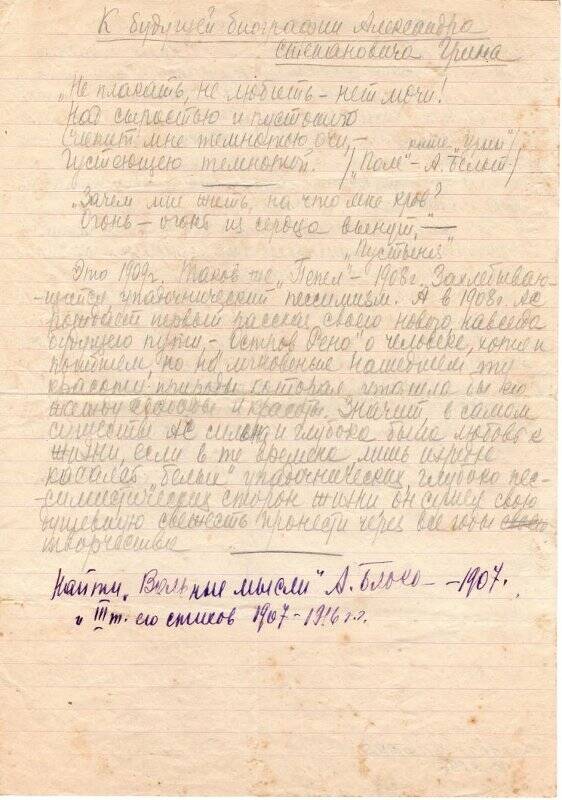 К будущей биографии Александра
Степановича Грина
„Не плакать, не любить – нет мочи!
Над сыростью и пустотою
Слепит мне темнотою очи, –
Густеющею темнотой. /„Поле" – А. Белого/
„Зачем мне жить, на что мне кров?
Огонь – огонь из сердца вынут, –
„Пустыня"
Это 1909г. Таков же „Пепел" – 1908г. Захлебываю-
-щийся упадочнический пессимизм. А в 1908г. АС
первый рассказ своего нового, навсегда
пути – „Остров Рено" о человеке, хотя и
погибшем, но на мгновенье нашедшем ту
красоту природы которая
свободы и красоты. Значит, в самом
существе АС сильна и глубока была любовь к
жизни, если в те времена лишь изредка
касаясь „белых" упадочнических, глубоко пес-
-симистических сторон жизни он сумел свою
душевную свежесть пронести через все годы
творчества
Найти „Вольные мысли" А. Блока – –1907.
и III т. его стихов 1907–1916 г.г.